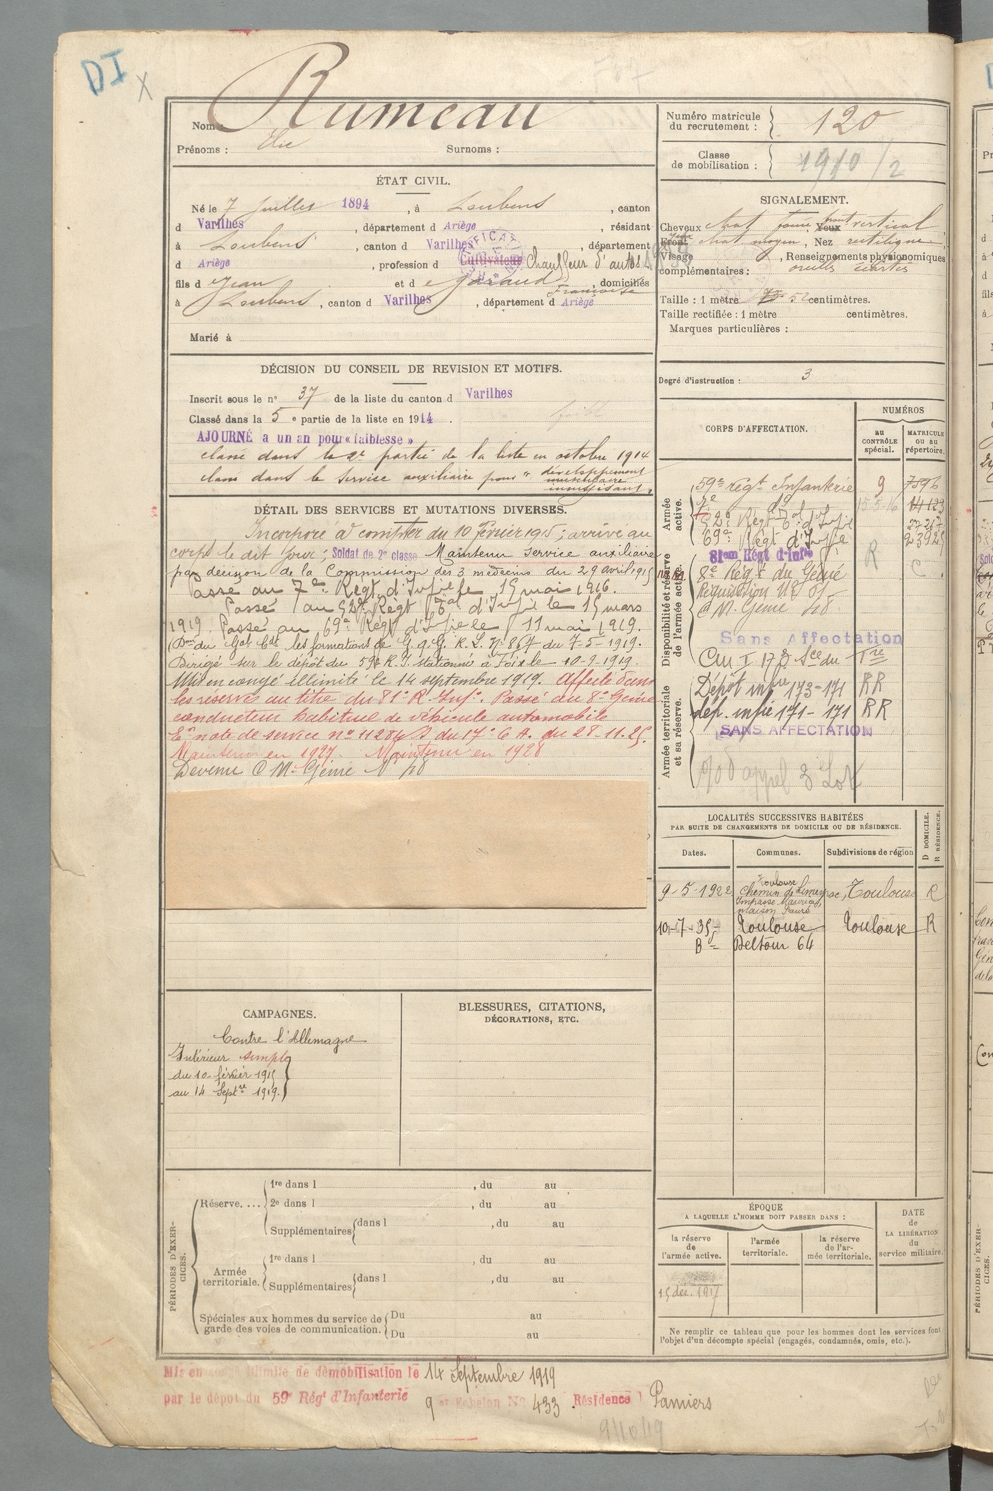 DI
X
Rumeau
Nom :
Prénoms : Elie Surnoms :
Numéro matricule du recrutement : 120
Classe de mobilisation : 1910/2
ÉTAT CIVIL.
Né le 7 Juillet 1894, à Loubens, canton
d Varilhes, département d Ariège, résidant
à Loubens, canton d Varilhes, département
d Ariège, profession d Cultivateur Chauffeur d'autos
fils d e Jean et d e Garaud Françoise, domiciliés
à Loubens, canton d Varilhes, département d Ariège
Marié à
SIGNALEMENT.
Cheveux chat Yeux
Front vertical
chat moyen, Nez rectiligne
Visage, Renseignements physionomiques
complémentaires : oreilles écartées
Taille : 1 mètre 52 centimètres.
Taille rectifiée : 1 mètre centimètres.
Marques particulières :
Degré d'instruction : 3
DÉCISION DU CONSEIL DE REVISION ET MOTIFS.
Inscrit sous le n° 37 de la liste du canton d Varilhes
Classé dans la 5 e partie de la liste en 1914.
AJOURNÉ à un an pour « faiblesse »
classé dans la 2e partie de la liste en octobre 1914
classé dans le service auxiliaire pour "développement
musculaire
insuffisant"
DÉTAIL DES SERVICES ET MUTATIONS DIVERSES.
Incorporé à compter du 10 février 1915; arrivé au
corps le dit jour, Soldat de 2e classe Maintenu service auxiliaire
par décision de la Commission des 3 médecins du 29 avril 1915
Passé au 7e Régt d'Inf le 15 mai 1916.
Passé au 52e Régt d'Inf le 15 mars
1919. Passé au 69e Régt d'Inf le 11 mai 1919.
On du Gal Cdt les formations de G.Q.G. R.L. N° du 7-5-1919.
Dirigé sur le dépôt du 59e R.I. stationné à Foix le 10-9-1919.
Mis en congé illimité le 14 septembre 1919. Affecté dans
les réserves au titre du 81e R. Inf. Passé au 8e Génie
conducteur habituel de véhicule automobile
En note de service n° 11284 du 17e C.A. du 28.11.25.
Maintenu en 1927. Maintenu en 1928
Devenu C M. Génie N° 48
CORPS D'AFFECTATION.
NUMÉROS
AU CONTRÔLE SPÉCIAL.
MATRICULE OU AU RÉPERTOIRE.
Armée active.
59e Régt Infanterie 9 7596
7e do 15-5-16 14123
52e Régt d'Inf 27257
69e Régt d'Inf 23925
Disponibilité et réserve de l'armée active.
81em Régt d'Infie R C
8e Régt du Génie
d M. Génie 48
Sans Affectation
Armée territoriale et sa réserve.
Dépôt infie 173-171 RR
dép. infie 171-171 RR
SANS AFFECTATION
appel 3 Lot
LOCALITÉS SUCCESSIVES HABITÉES
PAR SUITE DE CHANGEMENTS DE DOMICILE OU DE RÉSIDENCE.
Dates. Communes. Subdivisions de région
D DOMICILE.
R RÉSIDENCE.
9-5-1922 Toulouse Toulouse R
Impasse Maurice
Maison Faure
10-7-35 Toulouse Toulouse R
Bd Deltour 64
CAMPAGNES.
Contre l'Allemagne
Intérieur simple
du 10 février 1915
au 14 Septre 1919.
BLESSURES, CITATIONS,
DÉCORATIONS, ETC.
PÉRIODES D'EXERCICES.
Réserve....
1re dans l, du au
2e dans l, du au
Supplémentaires dans l, du au
Armée territoriale.
1re dans l, du au
Supplémentaires dans l, du au
Spéciales aux hommes du service de garde des voies de communication.
Du au
Du au
ÉPOQUE
A LAQUELLE L'HOMME DOIT PASSER DANS :
la réserve de l'armée active.
l'armée territoriale.
la réserve de l'armée territoriale.
DATE de LA LIBÉRATION du service militaire.
15 déc. 1917
Ne remplir ce tableau que pour les hommes dont les services font
l'objet d'un décompte spécial (engagés, condamnés, omis, etc.).
Mis en congé illimité de démobilisation le 14 Septembre 1919
par le dépôt du 59e Régt d'Infanterie 9 e Echelon N° 433. Résidence Pamiers
9/10/19